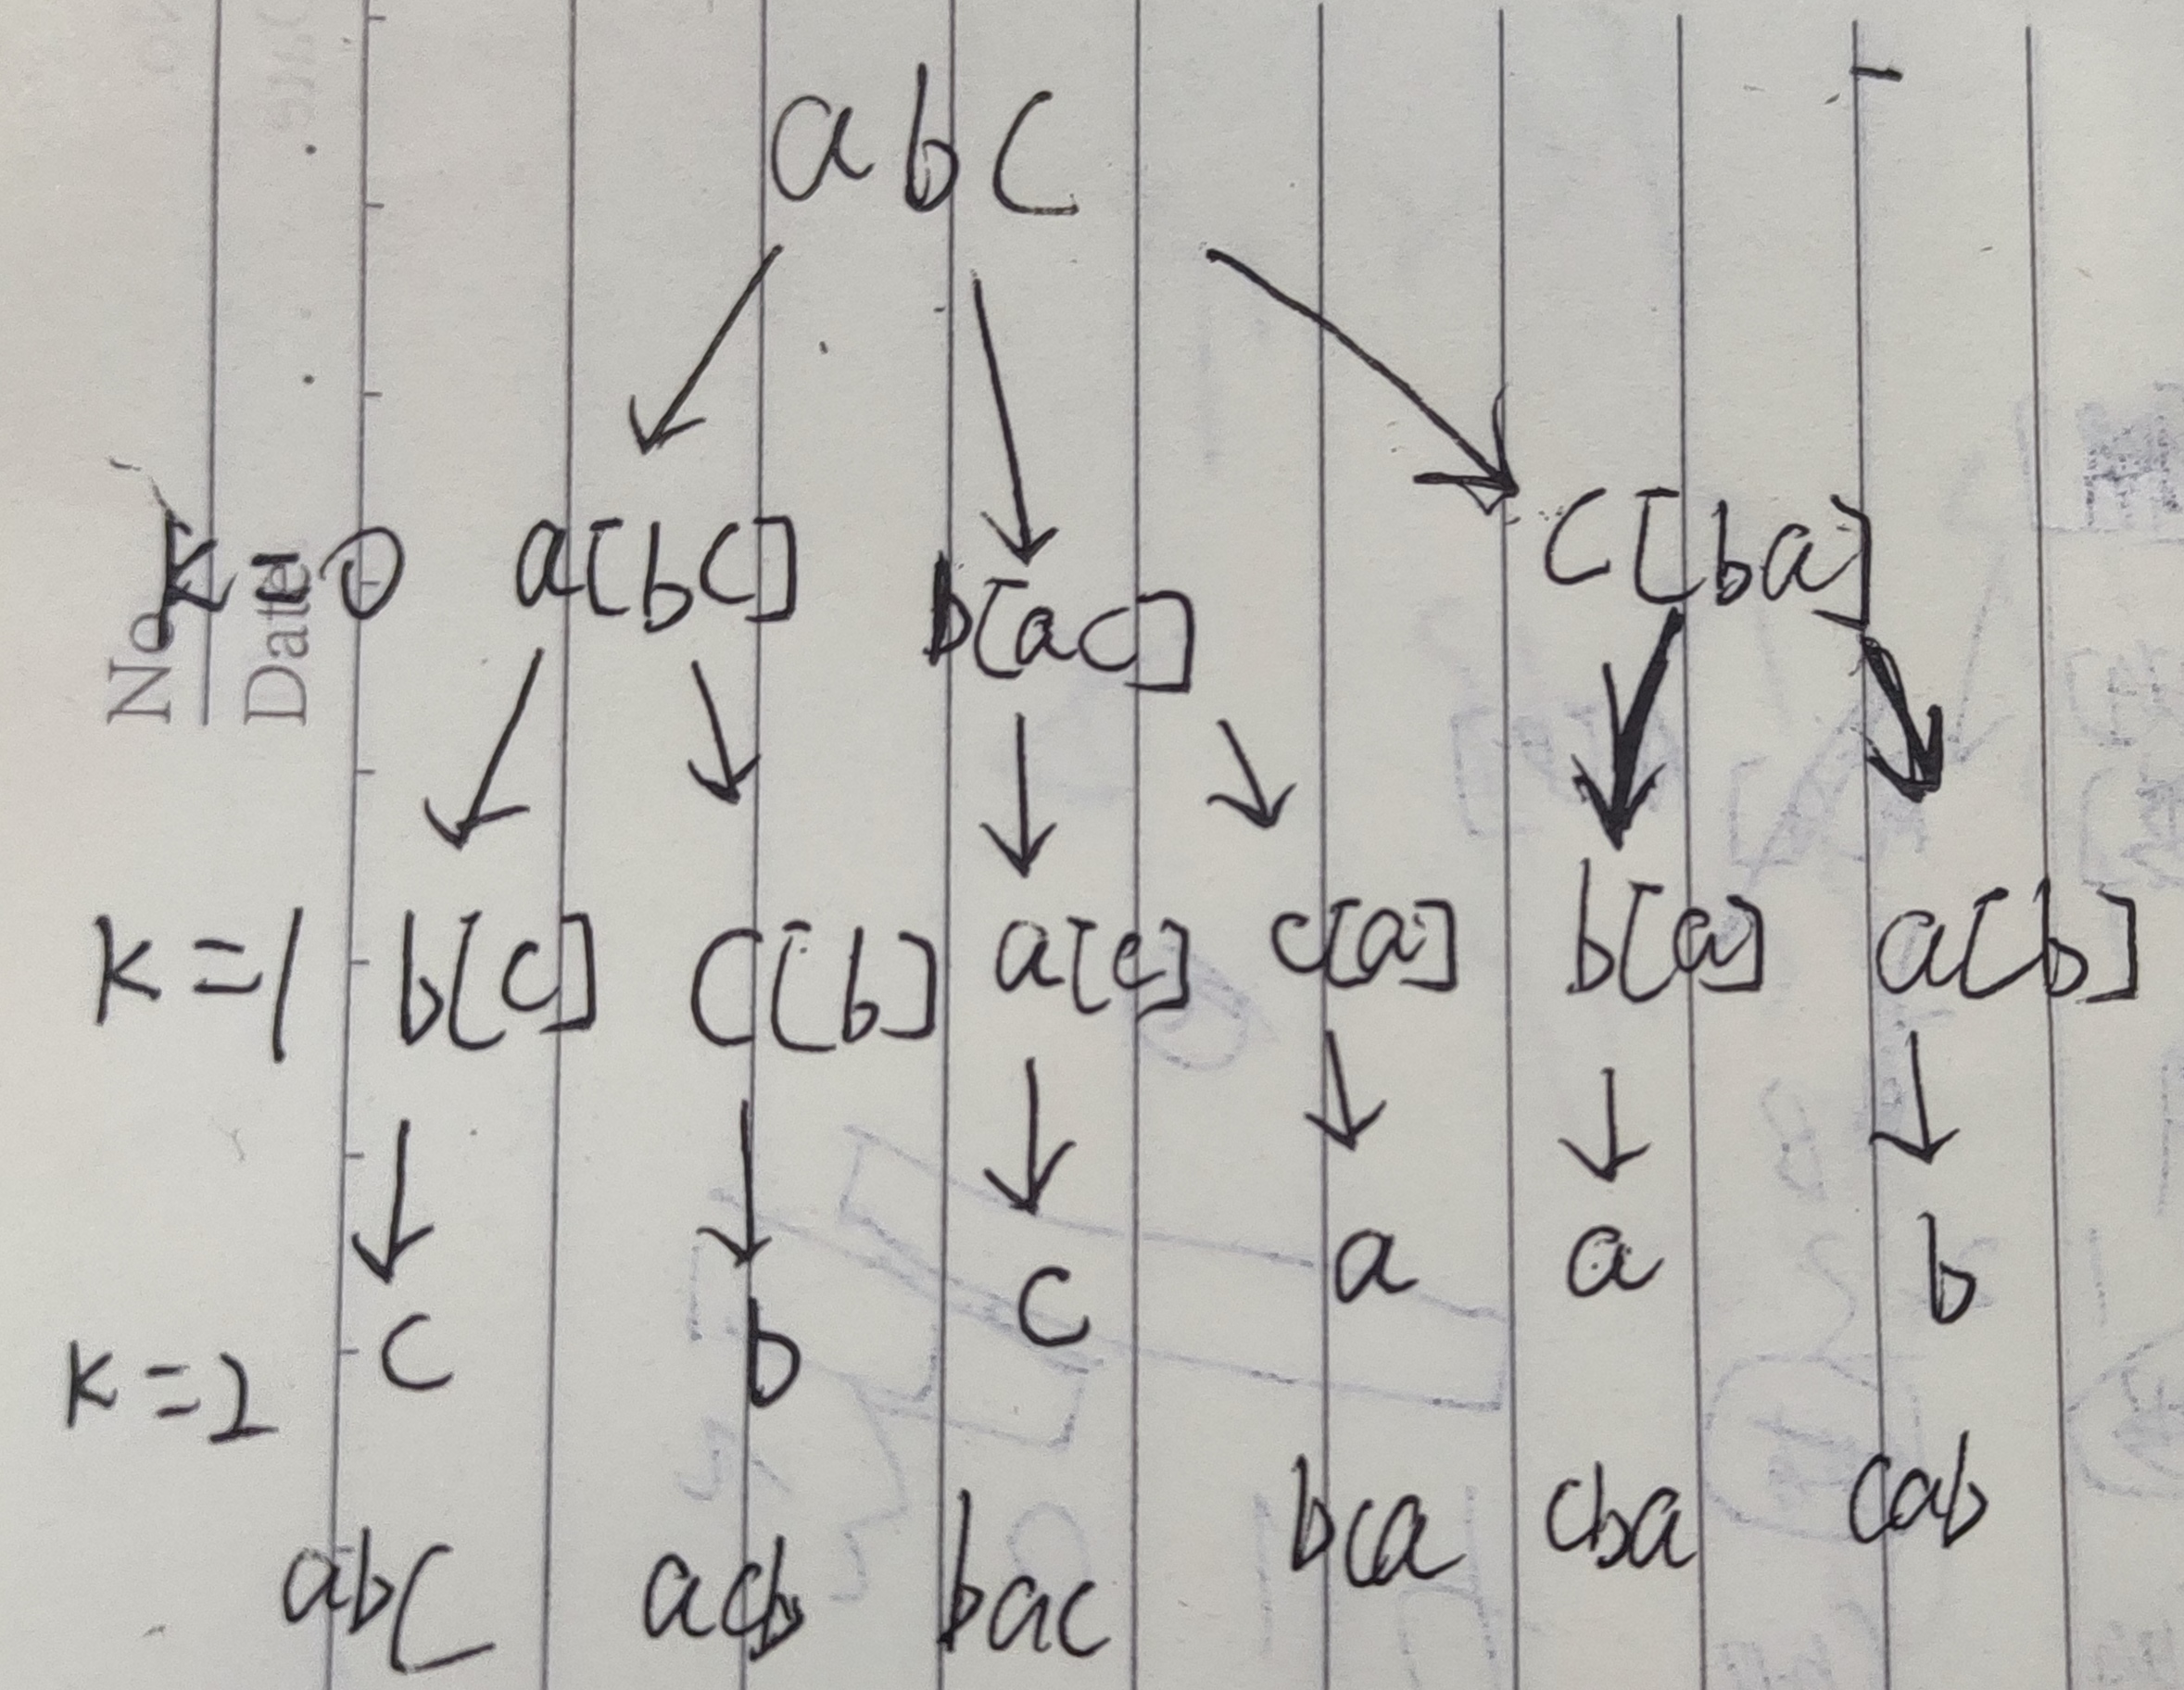 abc
K=0 a[bc] b[ac] c[ba]
No
Date
K=1 b[c] c[b] a[c] c[a] b[a] a[b]
K=2 c b c a a b
abc acb bac bca cba cab